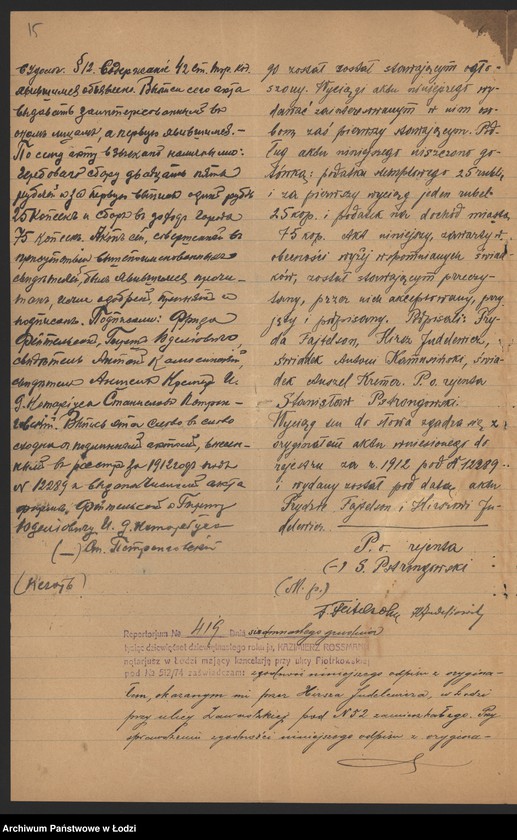 15
судом. § 12. Содержание 42 ст. Нот. Пол.
явившимся объявлено. Выписи сего акта
выдавать заинтересованным в
оном лицам а первую явившимся. –
По сему акту взыскано наличными:
гербового сбору двадцать пять
рублей и за первую выпись один рубль
25 копеек и сбора в доход города
75 копеек. Актъ сей, совершенный в
присутствии вышепоименованных
свидетелей, был явившимся прочи-
тан, ими одобрен, принят и
подписан. Подписали: Фрида
Файтельсон, Гирш Юделевич,
свидетель Антон Каминский,
свидетель Аншель Кремер И.
д. Нотариуса Станислав Петрон-
говский. Выпись эта слово в слово
сходна с подлинным актом, внесен-
ным в реестр за 1912 год под
N 12289 и выдана числа акта
Фриде Файтельсон и Гиршу
Юделевичу И. д. нотариуса
(—) Ст. Петронговский
(Печать)
go został został stawającym ogło-
szony. Wyciągi aktu niniejszego wy-
dawać zainteresowanym w nim oso-
bom zaś pierwszy stawającym. Po-
dług aktu niniejszego uiszczono go-
tówką: podatku stemplowego 25 rubli,
i za pierwszy wyciąg jeden rubel
25 kop. i podatek na dochód miasta
75 kop. Akt niniejszy, zawarty w
obecności wyżej wspomnianych świad-
ków, został stawającym przeczy-
tany, przez nich akceptowany, przy-
jęty i podpisany. Podpisali: Fry-
da Fajtelson, Hersz Judelewicz,
świadek Antoni Kamiński, świa-
dek Anszel Kremer. P. o. rejenta
Stanisław Pstrongowski.
Wyciąg ten co do słowa zgadza się z
oryginałem aktu wniesionego do
rejestru za r. 1912 pod N 12289
i wydany został pod datą aktu
Frydzie Fajtelson i Herszowi Ju-
delewicz.
P. o. rejenta
(-) S. Pstrongowski
(M. p.)
F. Feitelsohn HJudelewicz
Repertorjum № 419 Dnia siedemnastego grudnia
tysiąc dziewięćset dziewiętnastego roku ja, KAZIMIERZ ROSSMAN
notarjusz w Łodzi mający kancelarję przy ulicy Piotrkowskiej
pod № 512/74 zaświadczam zgodność niniejszego odpisu z orygina-
łem, okazanym mi przez Hersza Judelewicza, w Łodzi
przy ulicy Zawadzkiej pod N 52 zamieszkałego. Przy
sprawdzeniu zgodności niniejszego odpisu z orygina-
Archiwum Państwowe w Łodzi